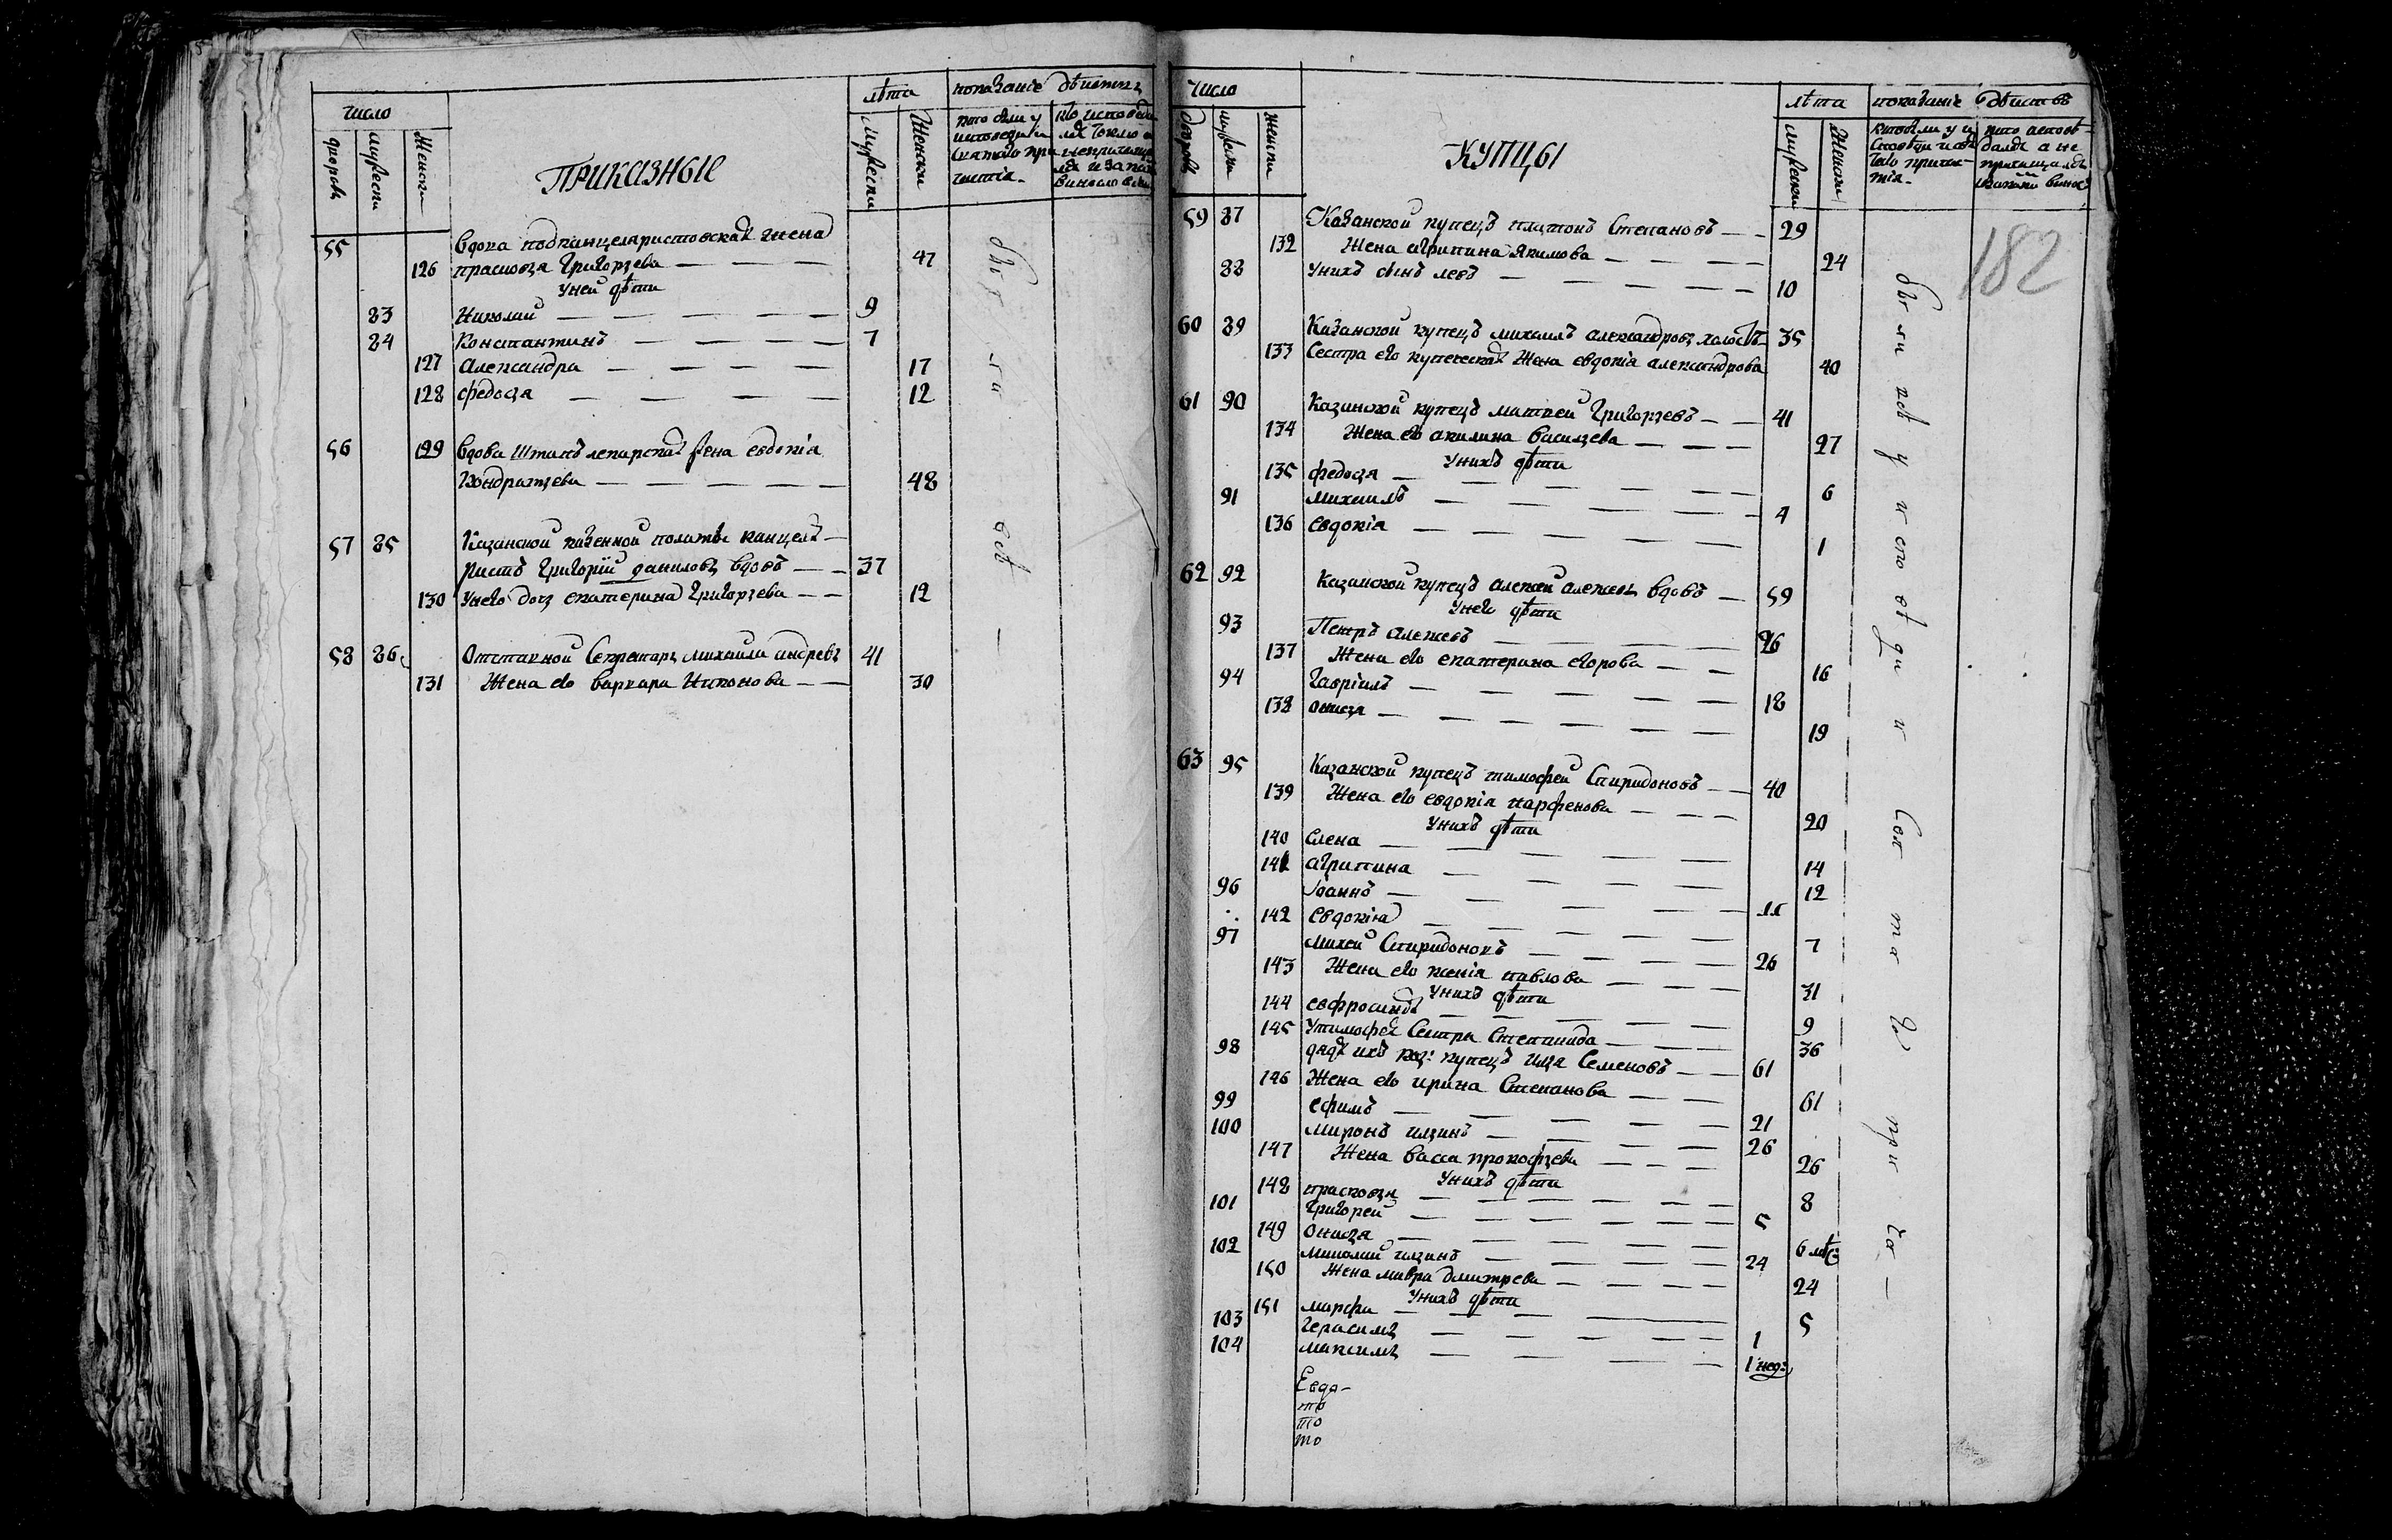 число
дворовъ
мужеска
женска
ПРИКАЗНЫЕ
лѣта
мужеска
женска
показаніе дѣиствъ
кто были у
исповеди и
святаго при
частія
55 вдова подканцеляристовская жена
126 прасковья григорьева — — — 47
у неи дѣти
83 николаи — — — — — 9
84 константинъ — — — — 7
127 александра — — — — 17
128 федосья — — — — 12
56 129 вдова штапъ лекарская жена евдокія
кондратьева — — — — — 48
57 85 казанскои казеннои полаты канцеля-
ристъ григорїи даниловъ вдовъ — — 37
130 у него дочь екатерина григорьева — — 12
58 86 отставнои секретарь михаила андреевъ 41
131 жена его варвара никонова — — 30
бы
ли
всѣ
—
182
число
дворовъ
мужеска
женска
КУПЦЫ
лѣта
мужеска
женска
показаніе дѣиствъ
кто были у и
споведи и свя
таго прича-
тія
кто исповѣ-
дался а не
причащался
59 87 казанскои купецъ платонъ степановъ — — 29
132 жена агрипина якимова — — — — 24
88 у нихъ сынъ левъ — — — — — 10
60 89 казанскои купецъ михаилъ александровъ холостъ 35
133 сестра его купеческая жена евдокія александрова 40
61 90 казанскои купецъ матвеи григорьевъ — — 41
134 жена его акилина васильева — — — 27
у нихъ дѣти
135 федосья — — — — — 6
91 михаилъ — — — — — 4
136 евдокія — — — — — 1
62 92 казанскои купецъ алексеи алексеевъ вдовъ — 59
у него дѣти
93 петръ алексеевъ — — — — 26
137 жена его екатерина егорова — — — 16
94 гавріилъ — — — — — 18
138 онисья — — — — — 19
63 95 казанскои купецъ тимофеи спиридоновъ — — 40
139 жена его евдокія парфенова — — — 20
у нихъ дѣти
140 елена — — — — — 14
141 агрипина — — — — 12
96 іоаннъ — — — — — 11
142 евдокіа — — — — — 7
97 михеи спиридоновъ — — — — 26
143 жена его ксенія павлова — — — 31
у нихъ дѣти
144 евфросинья — — — — 9
145 у тимофея сестра степанида — — — 36
98 дядя ихъ каз: купецъ илья семеновъ — — 61
146 жена его ирина степанова — — — 61
99 ефимъ — — — — — 21
100 миронъ ильинъ — — — — 26
147 жена васса прокофьева — — — 26
у нихъ дѣти
148 прасковья — — — — — 8
101 григореи — — — — — 5
149 онисья — — — — — 6 мѣс:
102 николаи ильинъ — — — — 24
150 жена мавра дмитрева — — — — 24
у нихъ дѣти
151 марфа — — — — — 5
103 герасимъ — — — — — 1
104 максимъ — — — — — 1 нед:
Евдо-
то
то
то
были всѣ у исповѣди и свя та го при ча —